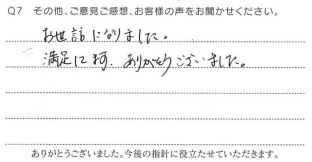 Q7 その他、ご意見ご感想、お客様の声をお聞かせください。
お世話になりました。
満足です。ありがとうございました。
ありがとうございました。今後の指針に役立たせていただきます。